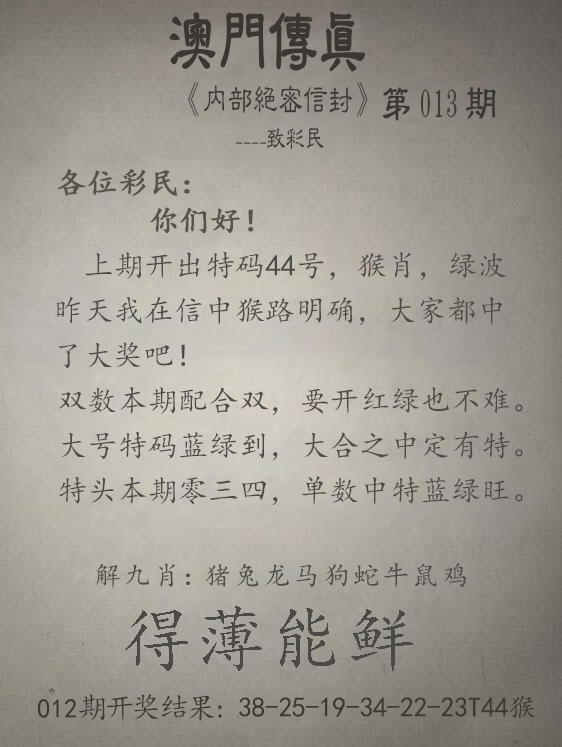 澳門傳眞
《内部絕密信封》第013期
----致彩民
各位彩民：
你们好！
上期开出特码44号，猴肖，绿波
昨天我在信中猴路明确，大家都中
了大奖吧！
双数本期配合双，要开红绿也不难。
大号特码蓝绿到，大合之中定有特。
特头本期零三四，单数中特蓝绿旺。
解九肖：猪兔龙马狗蛇牛鼠鸡
得薄能鲜
012期开奖结果：38-25-19-34-22-23T44猴